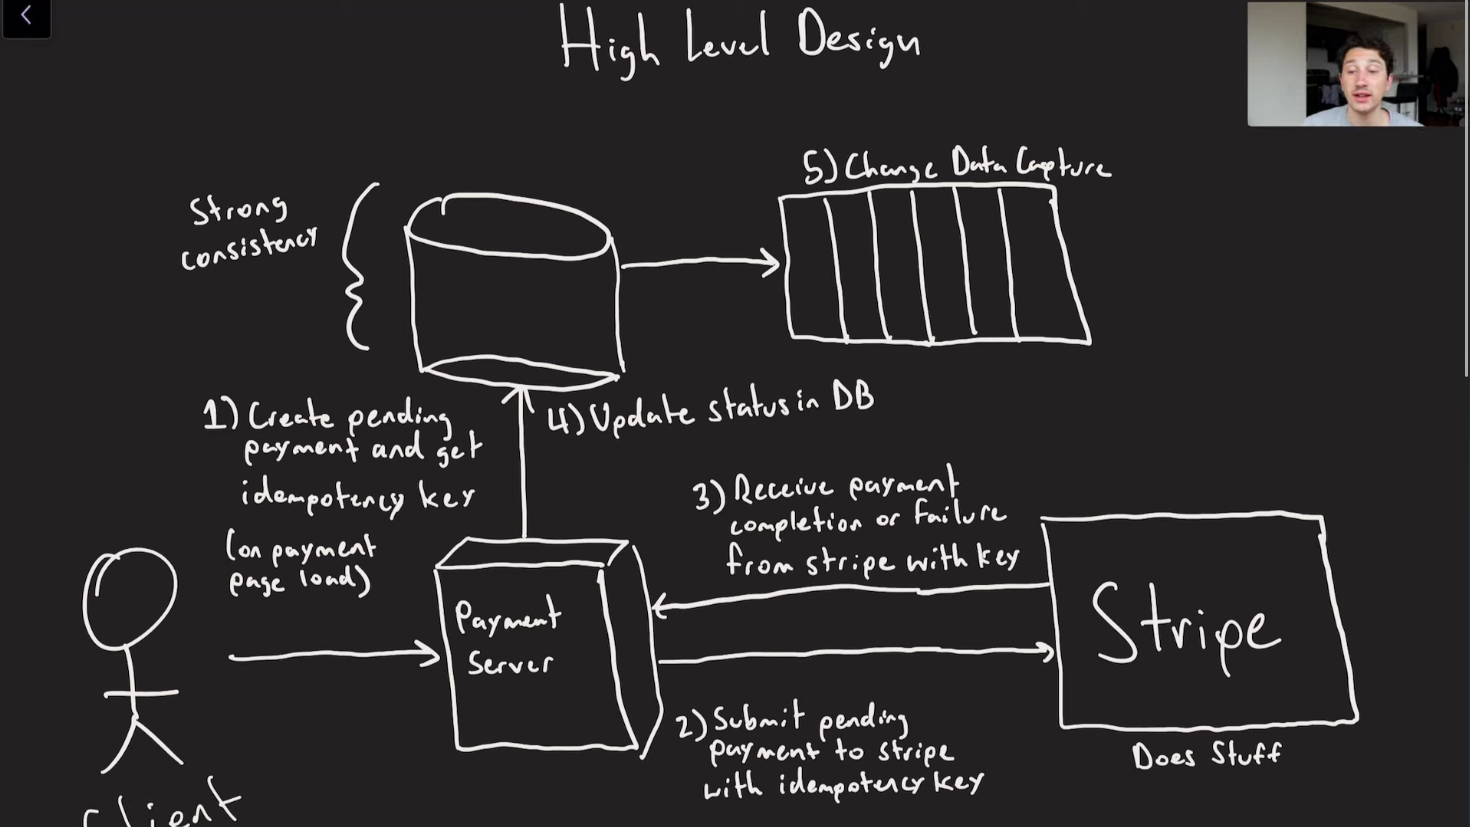 High Level Design
5) Change Data Capture
Strong
consistency
1) Create pending
payment and get
idempotency key
(on payment
page load)
4) Update status in DB
3) Receive payment
completion or failure
from stripe with key
Payment
Server
Stripe
2) Submit pending
payment to stripe
with idempotency key
Does Stuff
Client